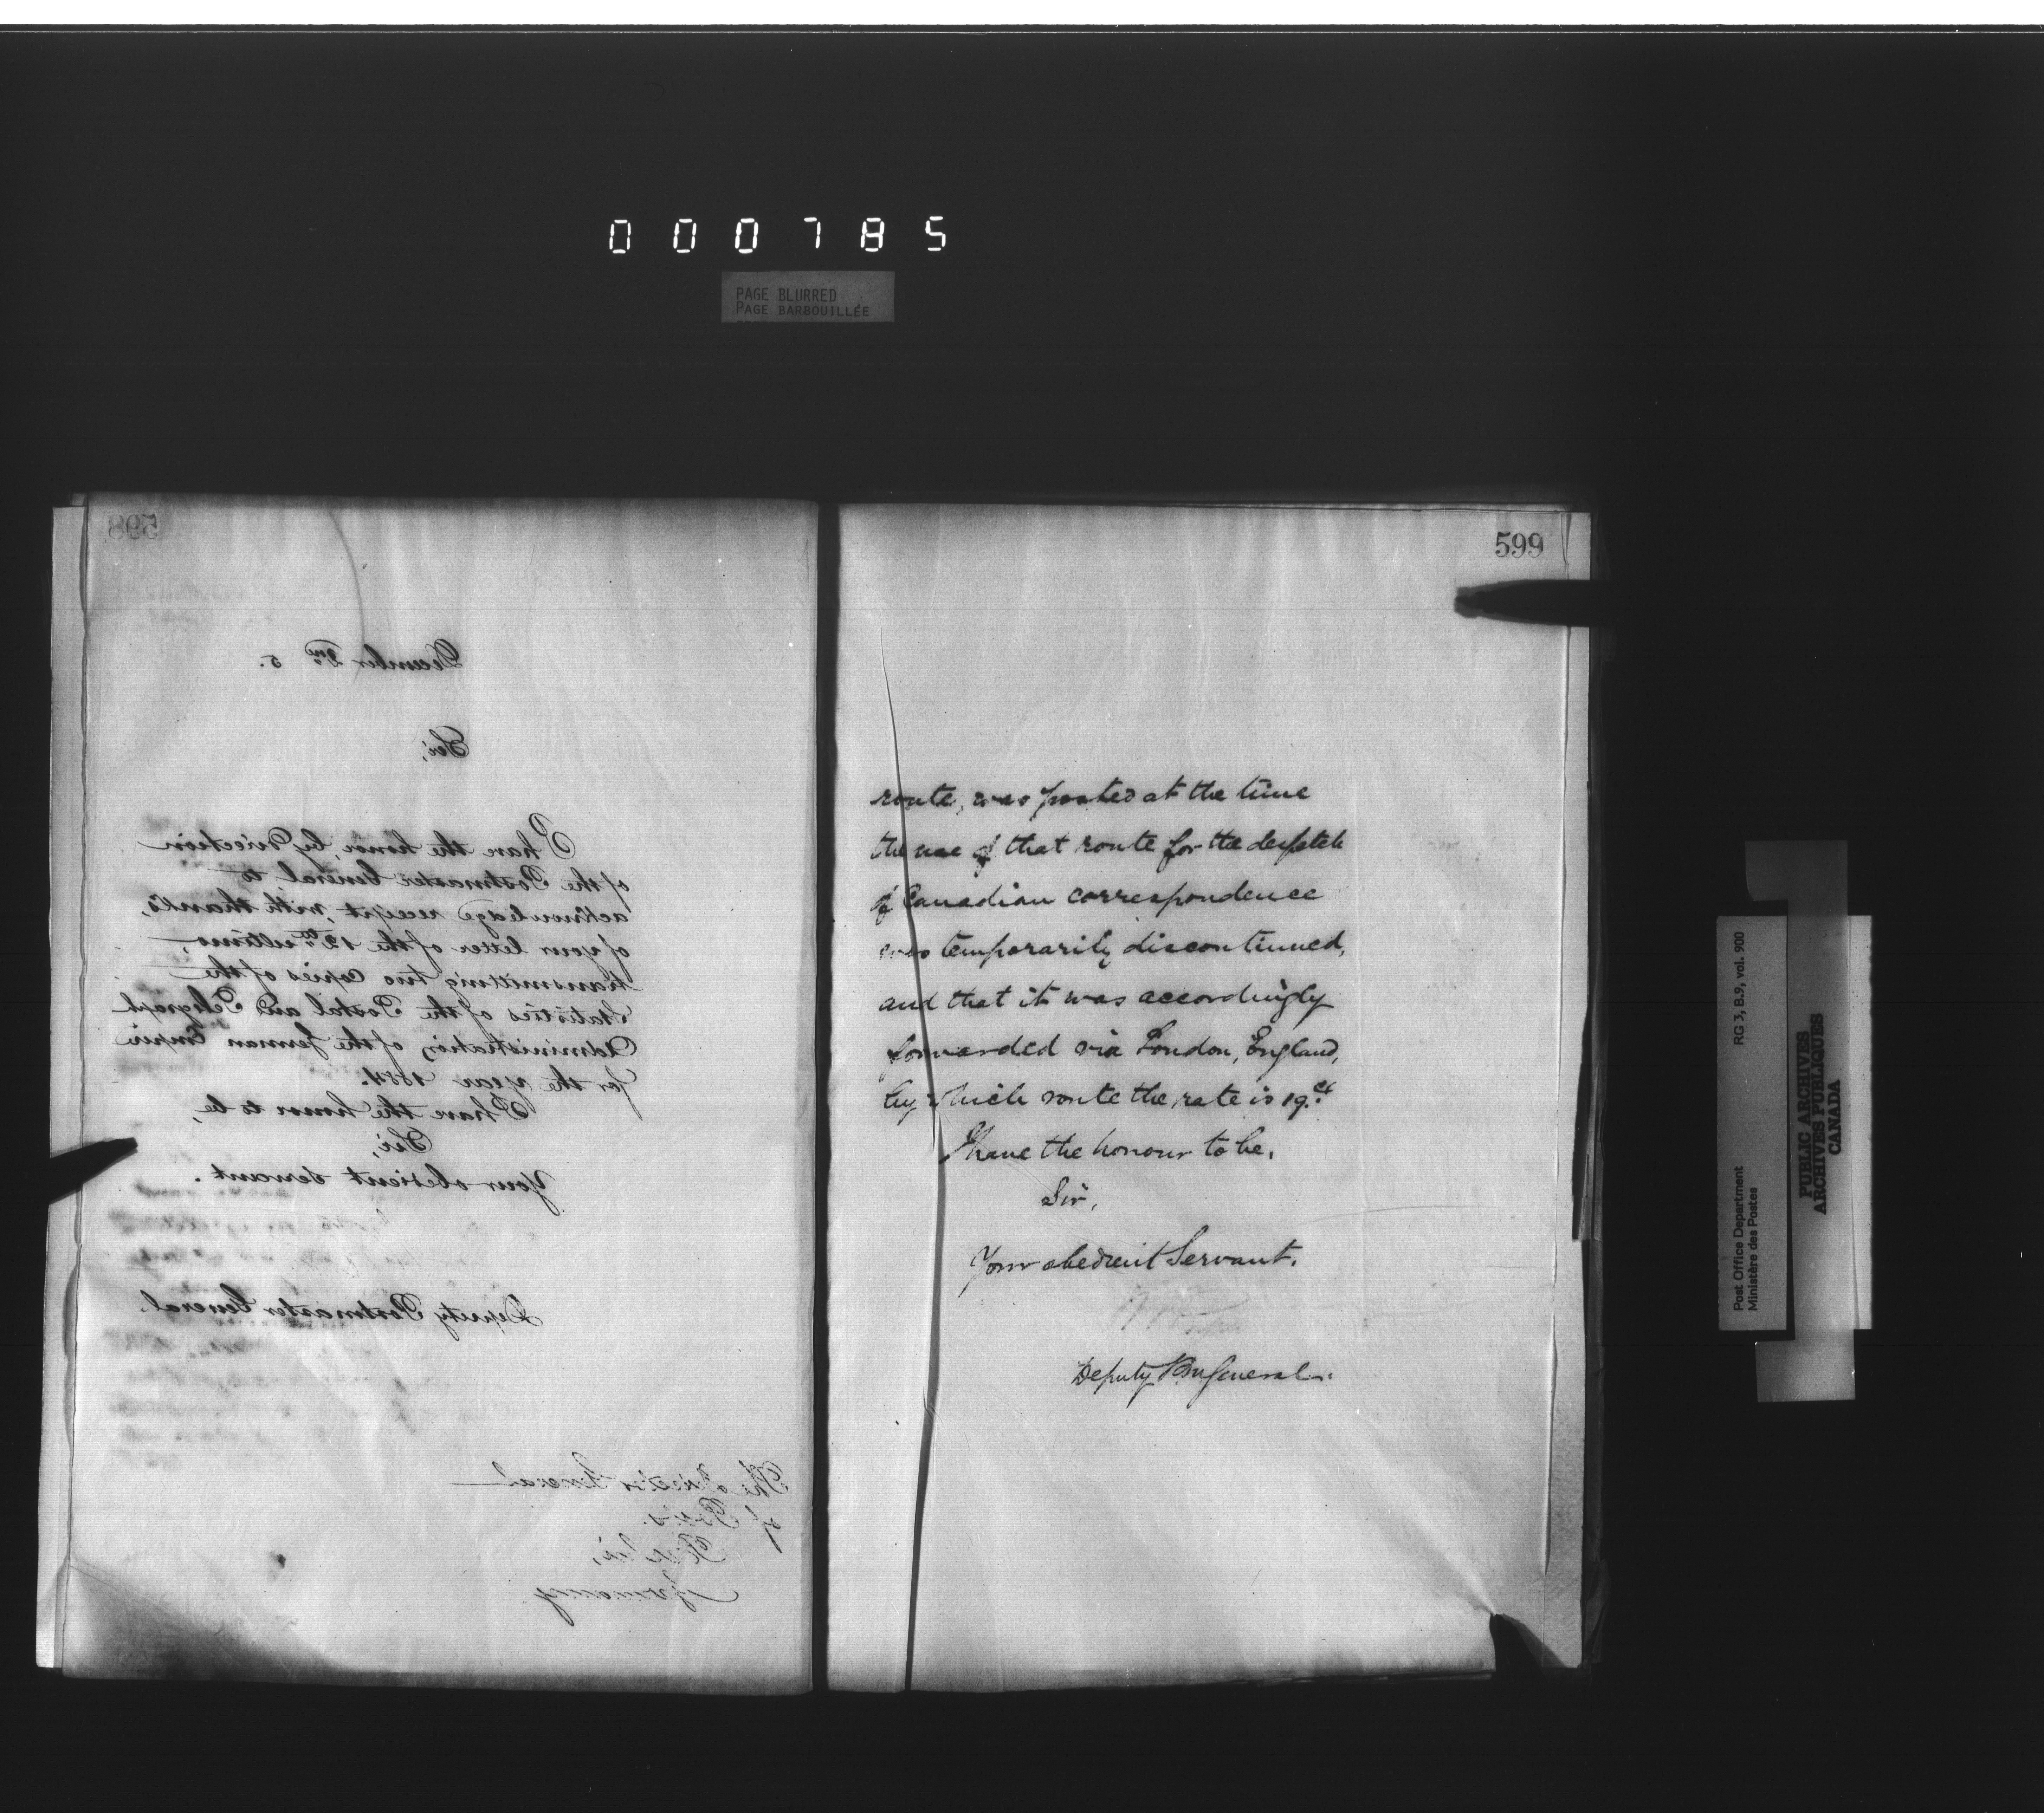 000785
PAGE BLURRED
PAGE BARBOUILLÉE
598
December 2nd 5.
Sir,
I have the honor, by direction
of the Postmaster General to
acknowledge receipt, with thanks,
of your letter of the 12th ultimo,
transmitting two copies of the
Statistics of the Postal and Telegraph
Administration of the German Empire
for the year 1884.
I have the honor to be,
Sir,
Your obedient servant.
Deputy Postmaster General.
The Director General
of Posts.
Berlin,
Germany
599
route, was posted at the time
the use of that route for the despatch
of Canadian correspondence
was temporarily discontinued,
and that it was accordingly
forwarded via London, England,
by which route the rate is 19.ct
I have the honour to be,
Sir,
Your obedient Servant.
Deputy PM General.
Post Office Department
Ministère des Postes
RG 3, B.9, vol. 900
PUBLIC ARCHIVES
ARCHIVES PUBLIQUES
CANADA